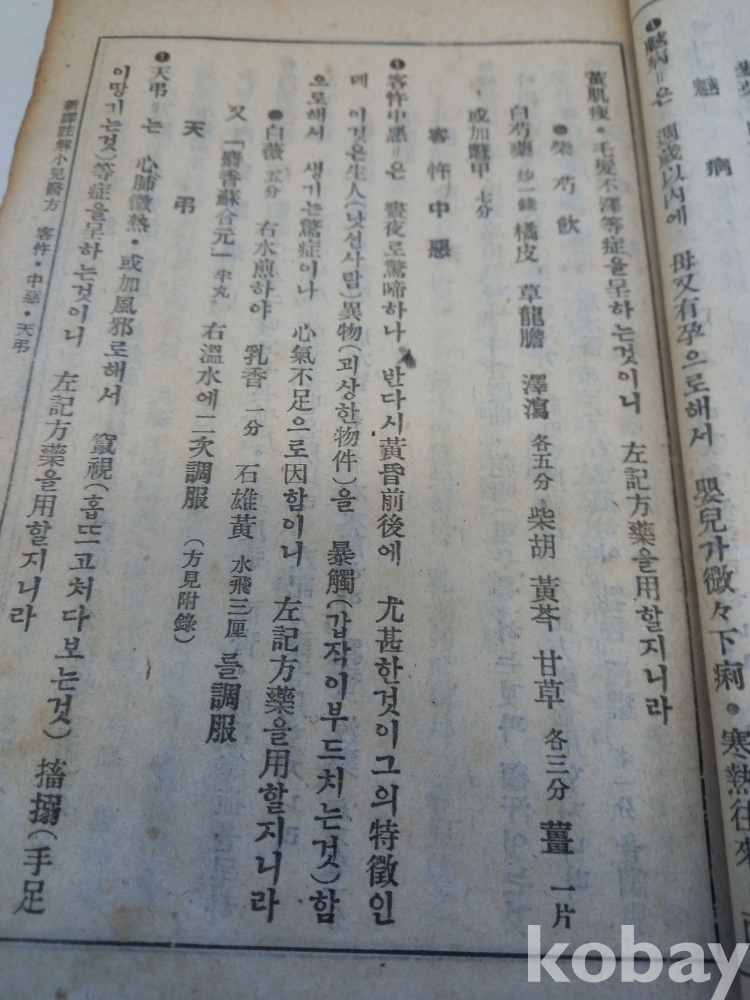 魃病
❶魃病=은 週歲以內에 母又有孕으로해서 嬰兒가 微々下痢•寒熱往來
黃肌瘦•毛髮不澤等症을呈하는것이니 左記方藥을用할지니라
●柴芍飮
白芍藥 炒一錢 橘皮 草龍膽 澤瀉 各五分 柴胡 黃芩 甘草 各三分 薑 一片
或加鼈甲 七分
客忤中惡
❶客忤中惡=은 晝夜로驚啼하나 반다시黃昏前後에 尤甚한것이그의特徵인
데 이것은生人(낫선사람)異物(괴상한物件)을 暴觸(갑작이부드치는것)함
으로해서 생기는驚症이나 心氣不足으로因함이니 左記方藥을用할지니라
●白薇 五分 右水煎하야 乳香 一分 石雄黃 水飛三厘 를調服
又「麝香蘇合元」半丸 右溫水에二次調服 (方見附錄)
天弔
❶天弔=는 心肺微熱•或加風邪로해서 竄視(홉뜨고처다보는것) 搐搦(手足
이땅기는것)等症을呈하는것이니 左記方藥을用할지니라
新譯註解小兒醫方 客忤•中惡•天弔
kobay